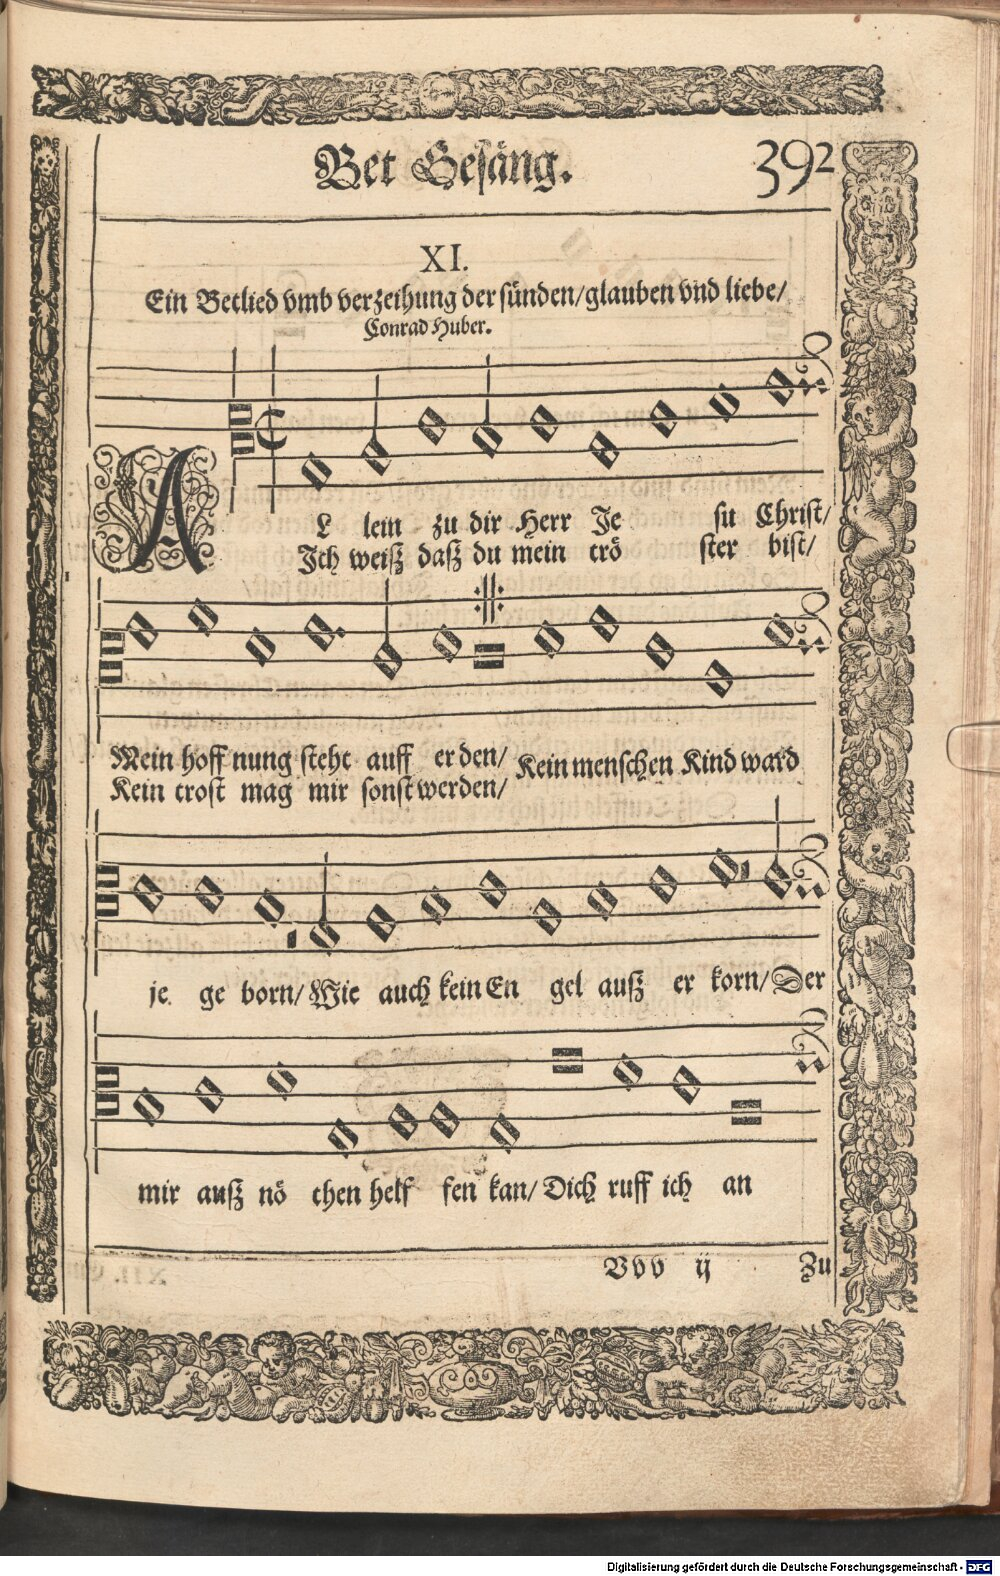 Bet Gesäng. 392
XI.
Ein Betlied vmb verzeihung der sünden/glauben vnd liebe/
Conrad Huber.
AL lein zu dir Herr Je su Christ/
Ich weiß daß du mein trö ster bist/
Mein hoff nung steht auff er den/ Kein menschen Kind ward
Kein trost mag mir sonst werden/
je ge born/ Wie auch kein En gel auß er korn/ Der
mir auß nö then helf fen kan/ Dich ruff ich an
Vvv ij Zu
Digitalisierung gefördert durch die Deutsche Forschungsgemeinschaft - DFG